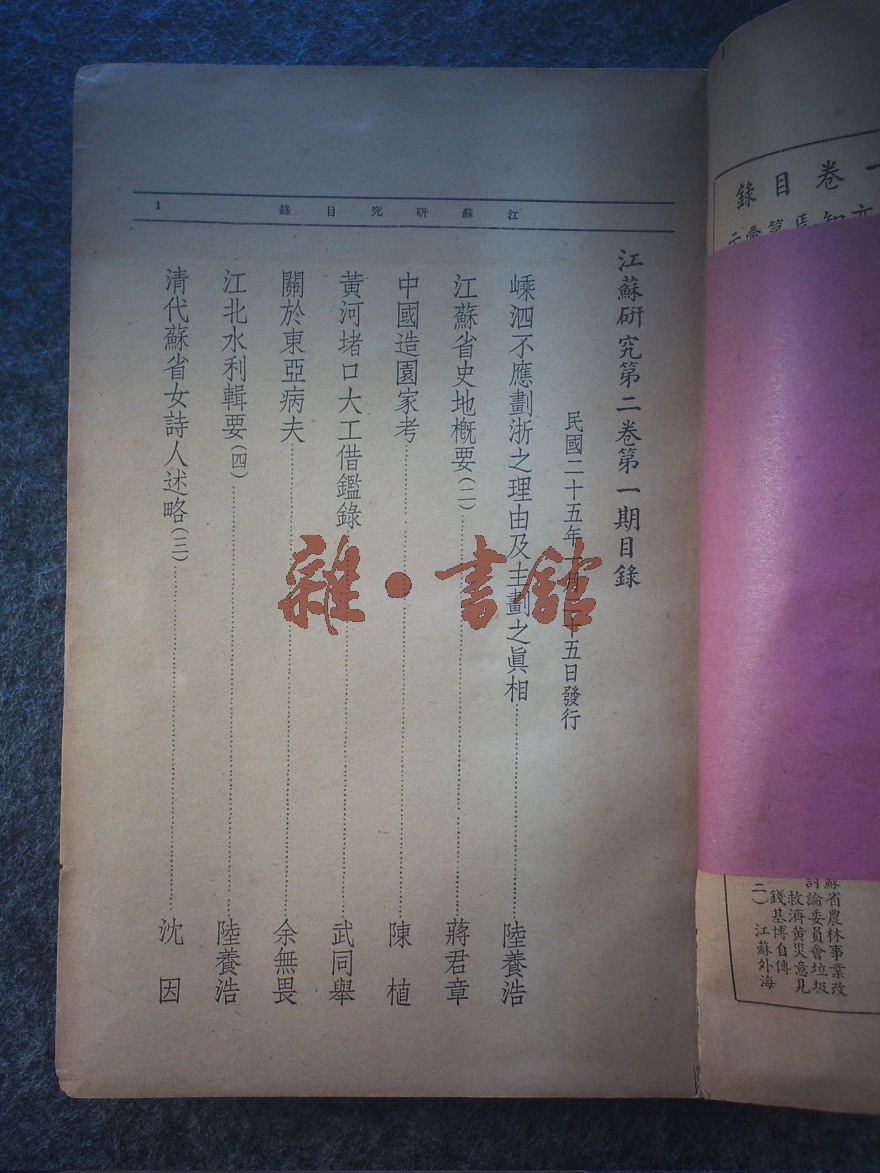 一卷目錄
蘇省農林事業改
討論委員會垃圾
救濟黃災意見
錢基博自傳
二） 江蘇外海
江蘇研究目錄
1
江蘇研究第二卷第一期目錄
民國二十五年一月二十五日發行
嵊泗不應劃浙之理由及主劃之眞相 陸養浩
江蘇省史地槪要(二) 蔣君章
中國造園家考 陳植
黃河堵口大工借鑑錄 武同舉
關於東亞病夫 余無畏
江北水利輯要(四) 陸養浩
清代蘇省女詩人述略(三) 沈因
雜·書館